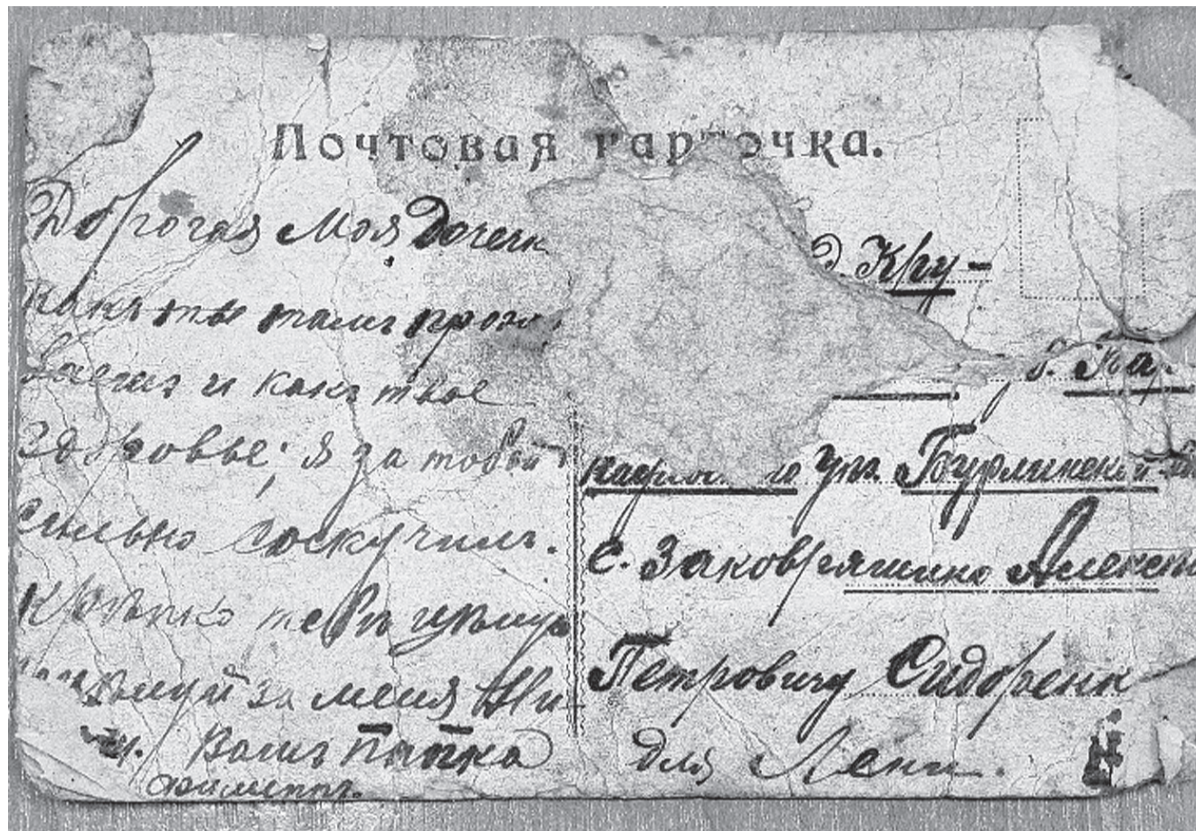 Почтовая карточка.
Дорогая Моя Дочечк
Какъ ты тамъ прожи
ваешъ и какъ твое
здоровье; я за тобой
сильно соскучилъ.
Крѣпко тебя цѣлую
цѣлуй за меня
Вашъ Папка
Филиппъ.
д Кру-
б. Ка.
уѣз. Бурлинской
с. Заковряшино Алексѣ
Петровичу Сидоренк
для Лены.